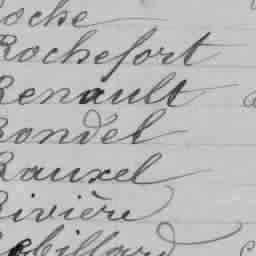 Roche
Rochefort
Renault
Rondel
Rauxel
Rivière
Robillard